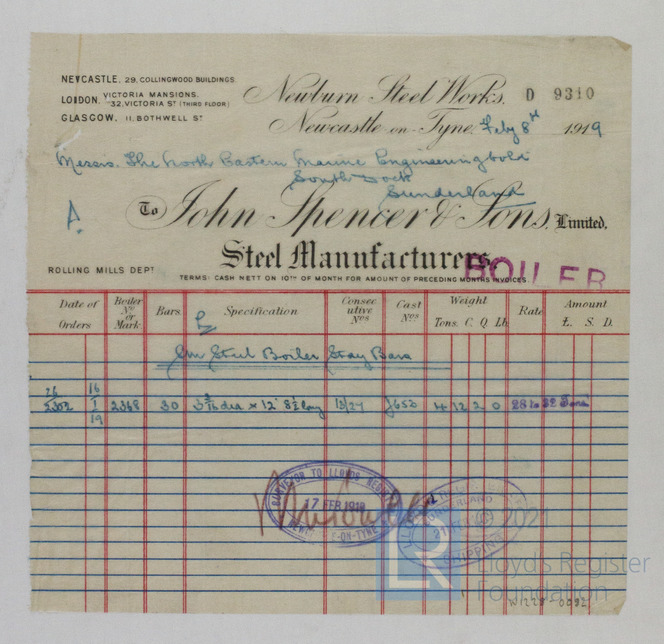 NEWCASTLE. 29, COLLINGWOOD BUILDINGS.
LONDON. VICTORIA MANSIONS.
32, VICTORIA ST (THIRD FLOOR)
GLASGOW. 11, BOTHWELL ST
Newburn Steel Works. D 9310
Newcastle-on-Tyne, Feby 8th 1919
Messrs. The North Eastern Marine Engineering Co Ld
South Dock
Sunderland
To John Spencer & Sons, Limited.
Steel Manufacturers.
ROLLING MILLS DEPT
TERMS: CASH NETT ON 10TH OF MONTH FOR AMOUNT OF PRECEDING MONTHS INVOICES.
BOILER
Date of Orders Boiler No or Mark. Bars. Specification Consecutive Nos Cast Nos Weight Tons. C. Q. Lb. Rate Amount £. S. D.
Steel Boiler Stay Bars
26 2302 16 1 19 2368 30 dia x 12' 8½ long 13/27 J653 4 12 2 0 28 to 32 Tons
SURVEYOR TO LLOYDS REGISTER
17 FEB 1919
NEWCASTLE-ON-TYNE
SUNDERLAND
SHIPPING
2021
LR Lloyd's Register
Foundation
W1228-0092